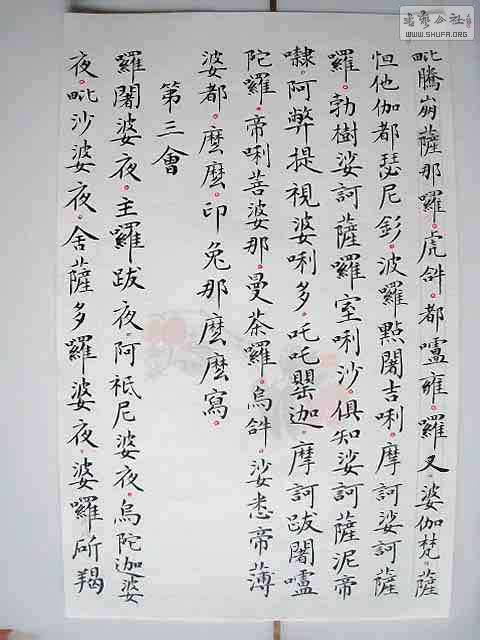 毗騰崩薩那羅。虎𤙖。都嚧雍。羅叉。婆伽梵。薩
怛他伽都瑟尼釤。波羅點闍吉唎。摩訶娑訶薩
羅。勃樹娑訶薩羅室唎沙。俱知娑訶薩泥帝
㘑。阿弊提視婆唎多。吒吒甖迦。摩訶跋闍嚧
陀羅。帝唎菩婆那。曼荼羅。烏𤙖。娑悉帝薄
婆都。麼麼。印兔那麼麼寫。
第三會
囉闍婆夜。主囉跋夜。阿祇尼婆夜。烏陀迦婆
夜。毗沙婆夜。舍薩多囉婆夜。婆囉斫羯
書藝公社
WWW.SHUFA.ORG